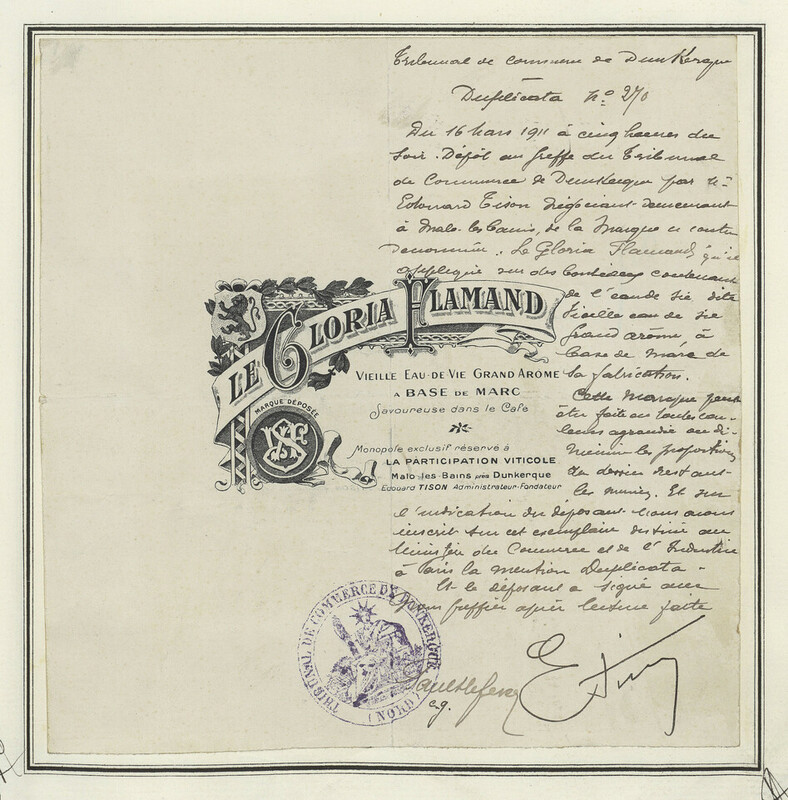 Tribunal de commerce de Dunkerque
Duplicata No 270
Du 16 Mars 1911 à cinq heures du
soir. Dépôt au Greffe du Tribunal
de Commerce de Dunkerque par Mr
Edouard Tison Négociant demeurant
à Malo-les-Bains, de la Marque ci contre
dénommée "Le Gloria Flamand" qu'il
applique sur des bouteilles contenant
de l'eau de vie dite
vieille eau de vie
grand arôme à
base de marc de
sa fabrication.
Cette Marque peut
être faite en toutes cou-
leurs agrandie ou di-
minuée les proportions
du dessin restant
les mêmes. Et sur
l'indication du déposant nous avons
inscrit sur cet exemplaire destiné au
Ministère du Commerce et de l'Industrie
à Paris la mention Duplicata.
Et le déposant a signé avec
nous greffier après lecture faite
LE GLORIA FLAMAND
MARQUE DÉPOSÉE
VIEILLE EAU-DE-VIE GRAND ARÔME
A BASE DE MARC
Savoureuse dans le Café
Monopole exclusif réservé à
LA PARTICIPATION VITICOLE
Malo-les-Bains près Dunkerque
Edouard TISON Administrateur-Fondateur
TRIBUNAL DE COMMERCE DE DUNKERQUE
(NORD)
c.g.